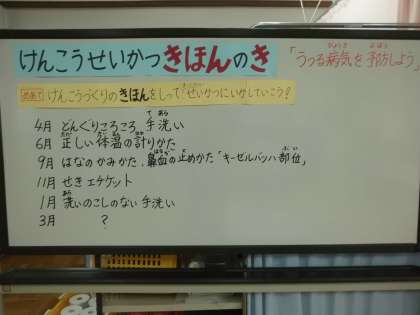 けんこうせいかつきほんのき
「うつる病気を予防しよう」
めあて けんこうづくりのきほんをしって!せいかつにいかしていこう?
4月 どんぐりころころ 手洗い
6月 正しい体温の計りかた
9月 はなのかみかた、鼻血の止めかた「キーゼルバッハ部位」
11月 せきエチケット
1月 洗いのこしのない手洗い
3月 ?